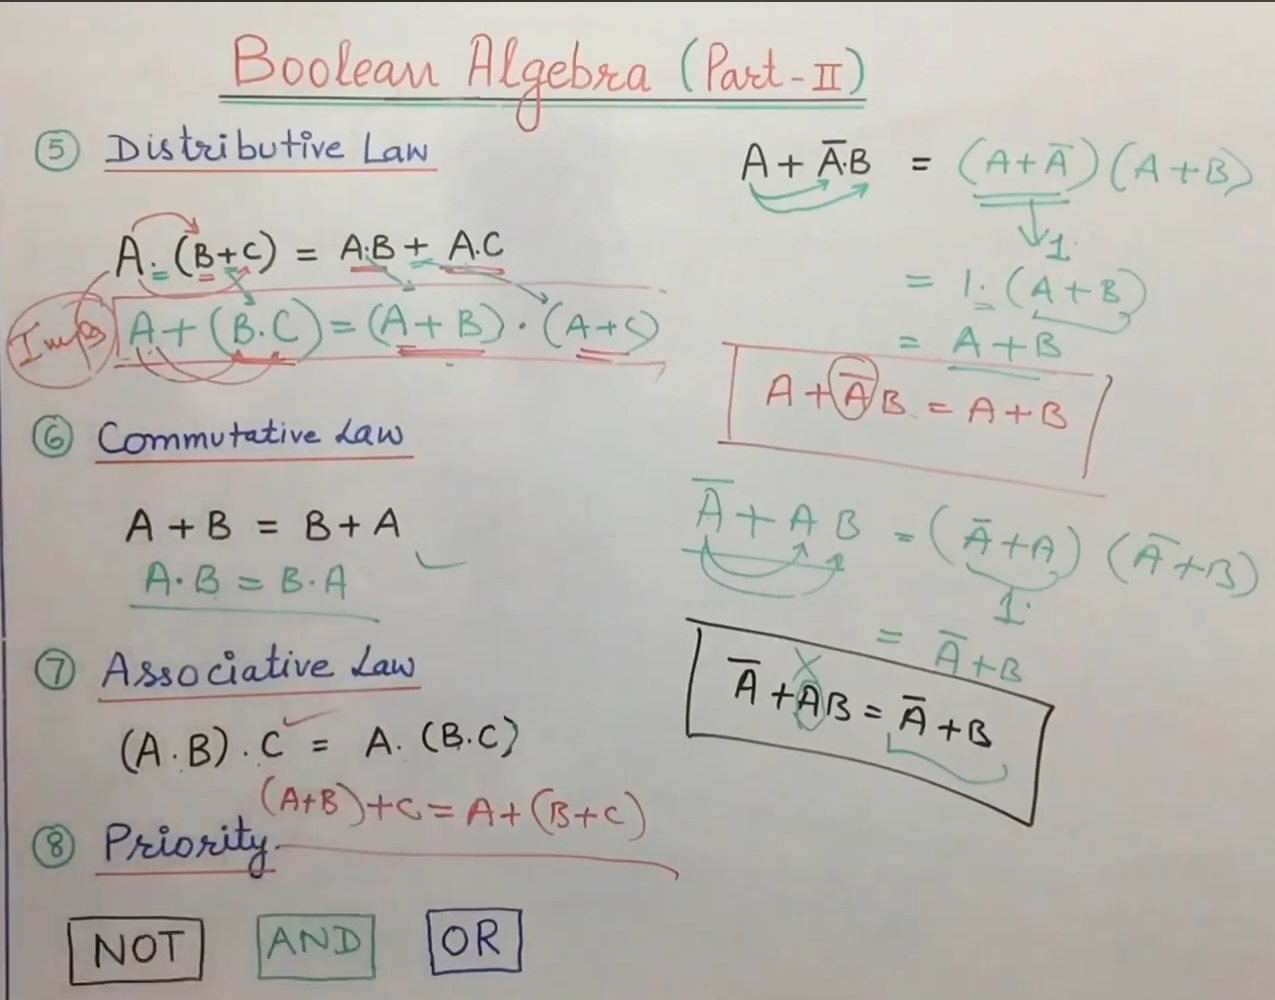 Boolean Algebra (Part-II)
⑤ Distributive Law
A.(B+C) = A.B + A.C
Imp A+(B.C)=(A+B).(A+C)
⑥ Commutative Law
A + B = B + A
A.B = B.A
⑦ Associative Law
(A.B).C = A.(B.C)
(A+B)+C=A+(B+C)
⑧ Priority
NOT AND OR
A + A̅.B = (A+A̅)(A+B)
1.
= 1.(A+B)
= A+B
A+A̅B = A+B
A̅+AB = (A̅+A)(A̅+B)
1.
= A̅+B
A̅+AB = A̅+B